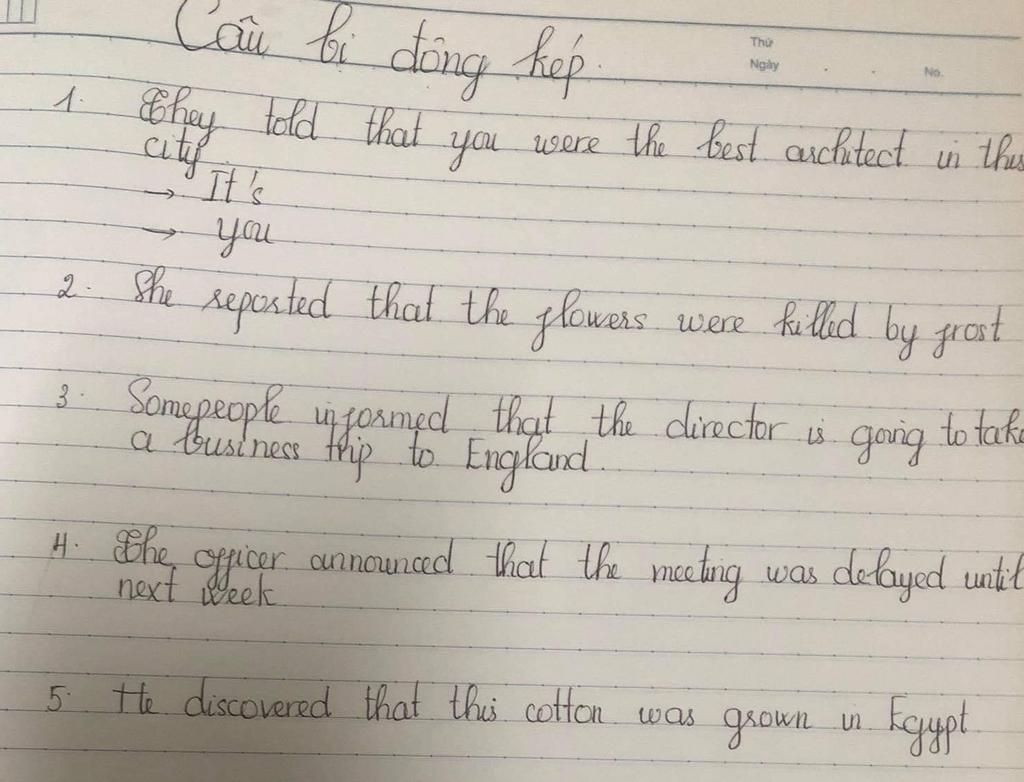 Câu bị động kép.
Thứ
Ngày . . No.
1. They told that you were the best architect in this
city
→ It's
→ you
2. She reported that the flowers were killed by frost
3. Somepeople informed that the director is going to take
a business trip to England.
4. The officer announced that the meeting was delayed until
next week
5. He discovered that this cotton was grown in Egypt